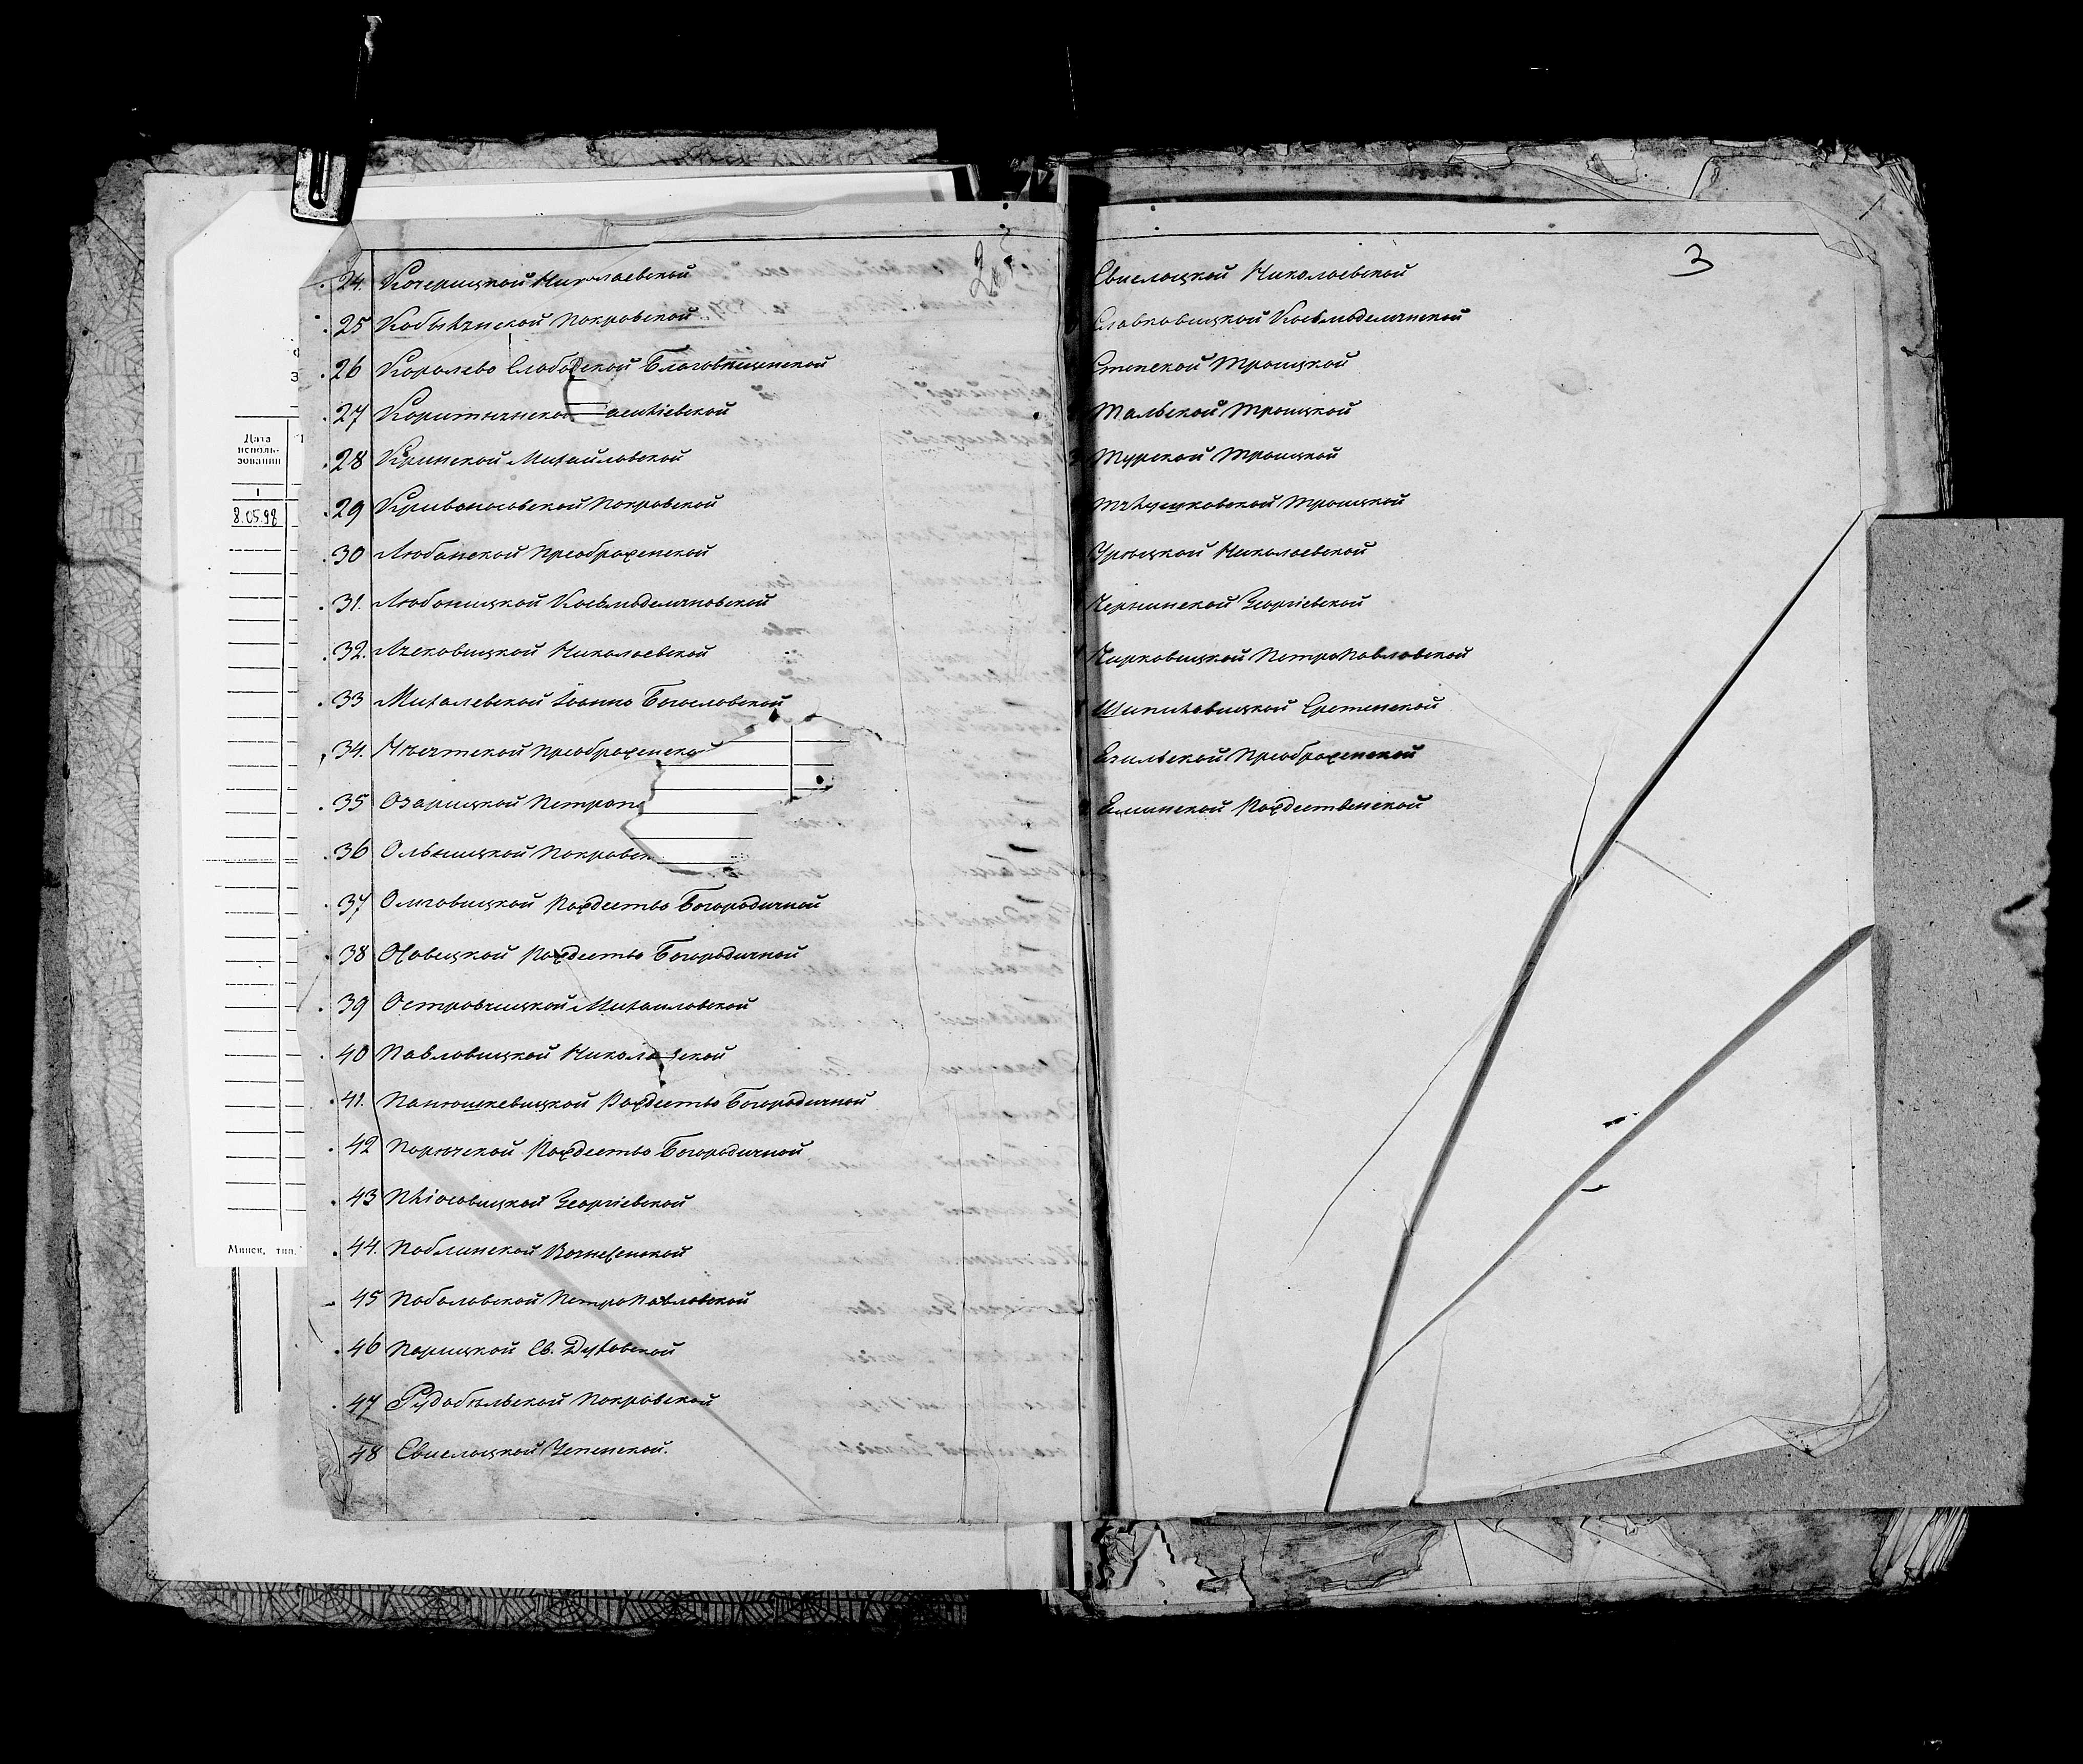 Дата
исполь-
зования
1
8.05.98
Минск, тип.
2об
24. Кочерицкой Николаевской
25 Кобылянской Покровской
26 Королево Слободской Благовѣщенской
27 Коритнянской
28 Кринской Михайловской
29 Кривоносовской Покровской
30 Любанской Преображенской
31. Любоницкой Косьмодемяновской
32. Лясковицкой Николаевской
33 Михалевской Іоанно Богословской
34. Преображенско
35 Озарицкой Петроп
36 Ольницкой Покровск
37 Омговицкой Рождество Богородичной
38 Осовецкой Рождество Богородичной
39 Островчицкой Михаиловской
40 Павловицкой Никола ской
41. Панюшкевицкой Рождество Богородичной
42 Порѣчской Рождество Богородичной
43 Георгіевской
44. Поблинской Вознесенской
45 Поболовской ПетроПавловской
46 Парицкой Св. Духовской
47 Рудобѣльской Покровской
48 Свислоцкой Успенской.
3
Свислоцкой Николаевской
Славковицкой Косьмодемянской
Степской Троицкой
Тальской Троицкой
Турской Троицкой
Троицкой
Урѣцкой Николаевской
Чернинской Георгіевской
Чирковицкой ПетроПавловской
Шипиловицкой Сретенской
Язильской Преображенской
Яминской Рождественской